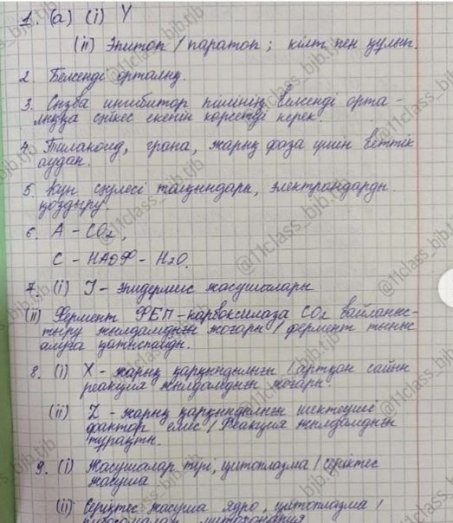 1. (a) (i) Y
(ii) Эпитоп / паратоп ; кілт пен құлып.
2. Белсенді орталық.
3. Сызба ингибитор пішінінің белсенді орта-
лыққа сәйкес екенін көрсетуі керек
4. Тилакоид, грана, жарық фаза үшін беттік
аудан.
5. Күн сәулесі тасқындары, электрондарды
қоздыру.
6. А - CO2,
С - НАДФ - H2O.
7. (i) J - Эпидермис жасушалары
(ii) Фермент ФЕП - карбоксилаза CO2 байланыс-
тыру жылдамдығы жоғары / фермент тыныс
алуға қатыспайды.
8. (i) X - жарық қарқындылығы / артқан сайын
реакция жылдамдығы жоғары.
(ii) Z - жарық қарқындылығы шектеуші
фактор емес / Реакция жылдамдығы
тұрақты.
9. (i) Жасушалар түрі, цитоплазма / серіктес
жасуша
(ii) Серіктес жасуша ядро, цитоплазма /
рибосомалар, митохондрия
@11class_bjb.tjb